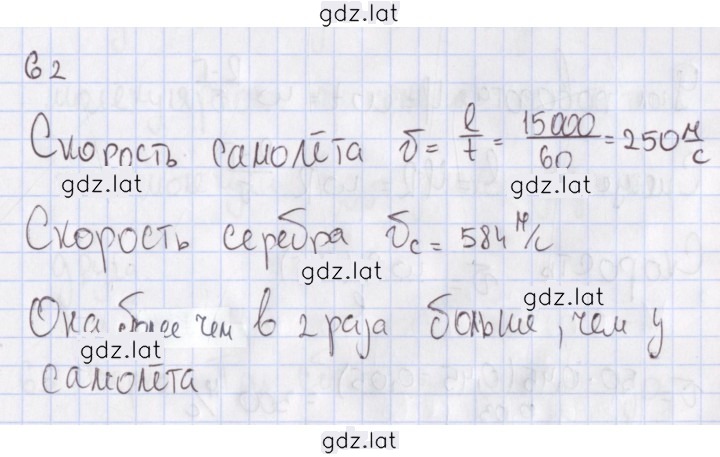 gdz.lat
62
Скорость самолёта v = l/t = 15000/60 = 250 м/с
gdz.lat gdz.lat
Скорость серебра vс = 584 м/с
gdz.lat
Она более чем в 2 раза больше, чем у
gdz.lat gdz.lat
самолёта
gdz.lat